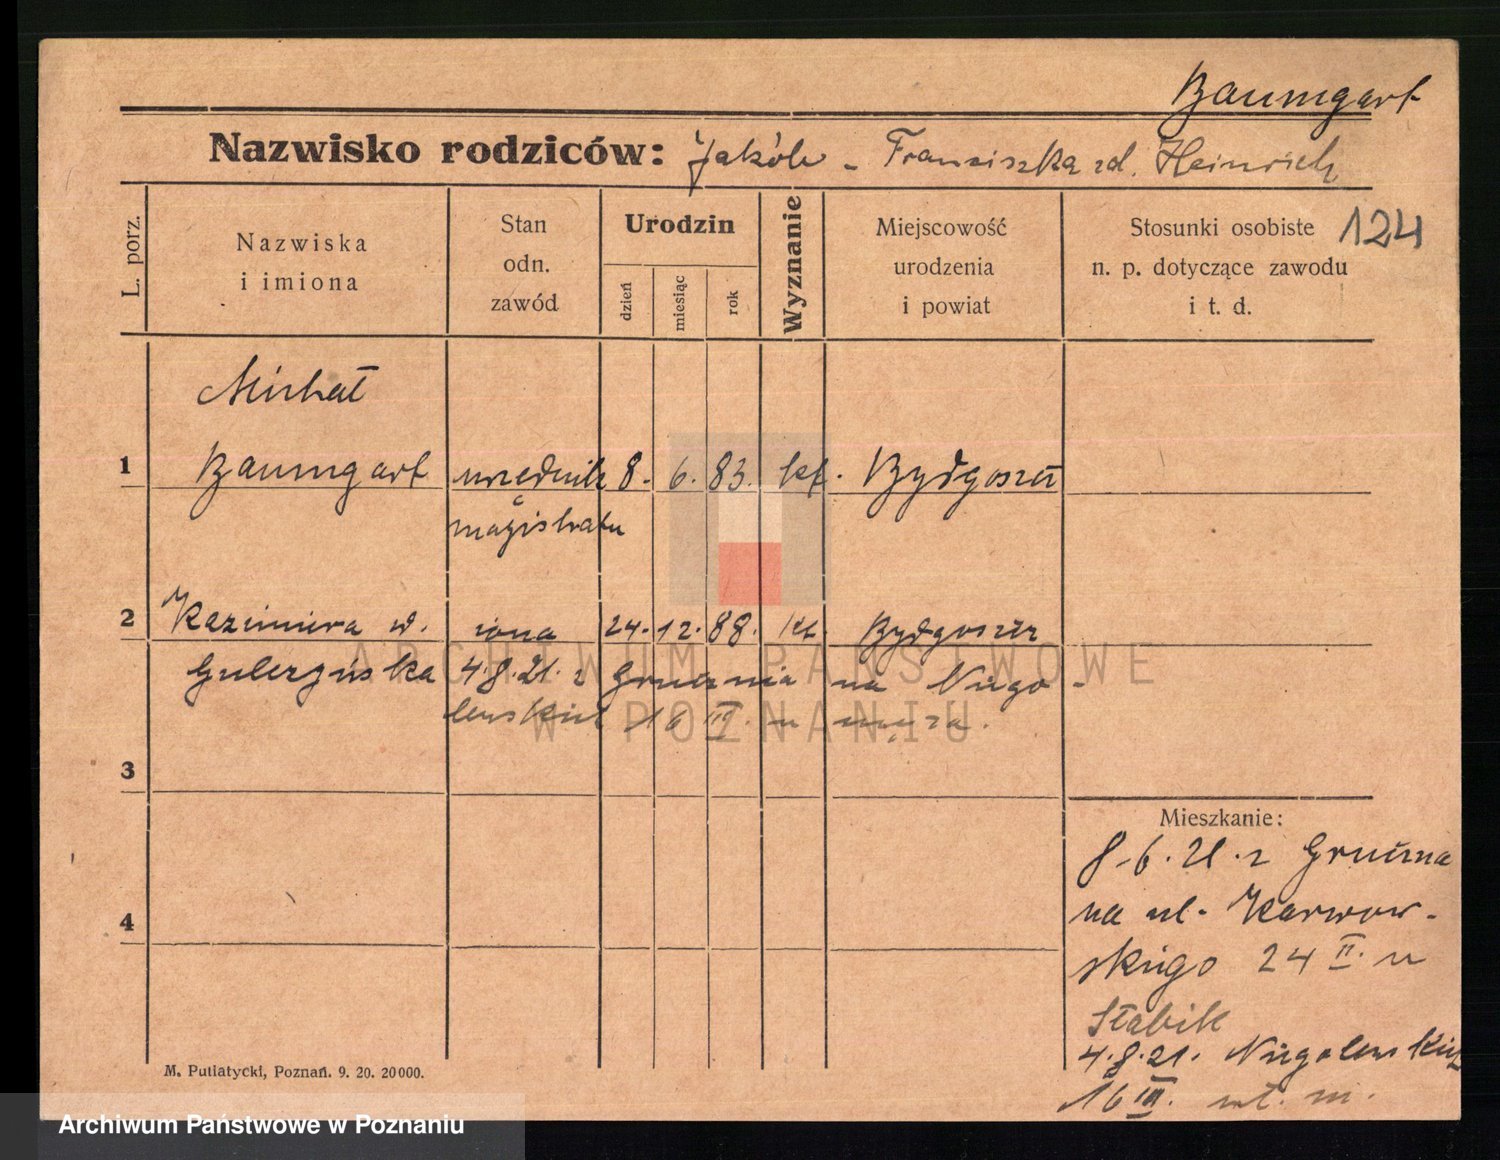 Baumgart
Nazwisko rodziców: Jakób - Franciszka zd. Heinrich
124
L. porz.
Nazwiska i imiona
Stan odn. zawód
Urodzin
dzień
miesiąc
rok
Wyznanie
Miejscowość urodzenia i powiat
Stosunki osobiste n. p. dotyczące zawodu i t. d.
Michał
1 Baumgart urzędnik 8. 6. 83. kt. Bydgoszcz
magistratu
2 Kazimiera w. żona 24. 12. 88. kt. Bydgoszcz
4.8.21. z Grudznia na
16 III u męża.
3
4
Mieszkanie:
8.6.21. z
na ul. Karwow-
skiego 24 II. u
Stabik
4.8.21.
16 III. wł. m.
M. Putiatycki, Poznań. 9. 20. 20000.
ARCHIWUM PAŃSTWOWE
W POZNANIU
Archiwum Państwowe w Poznaniu